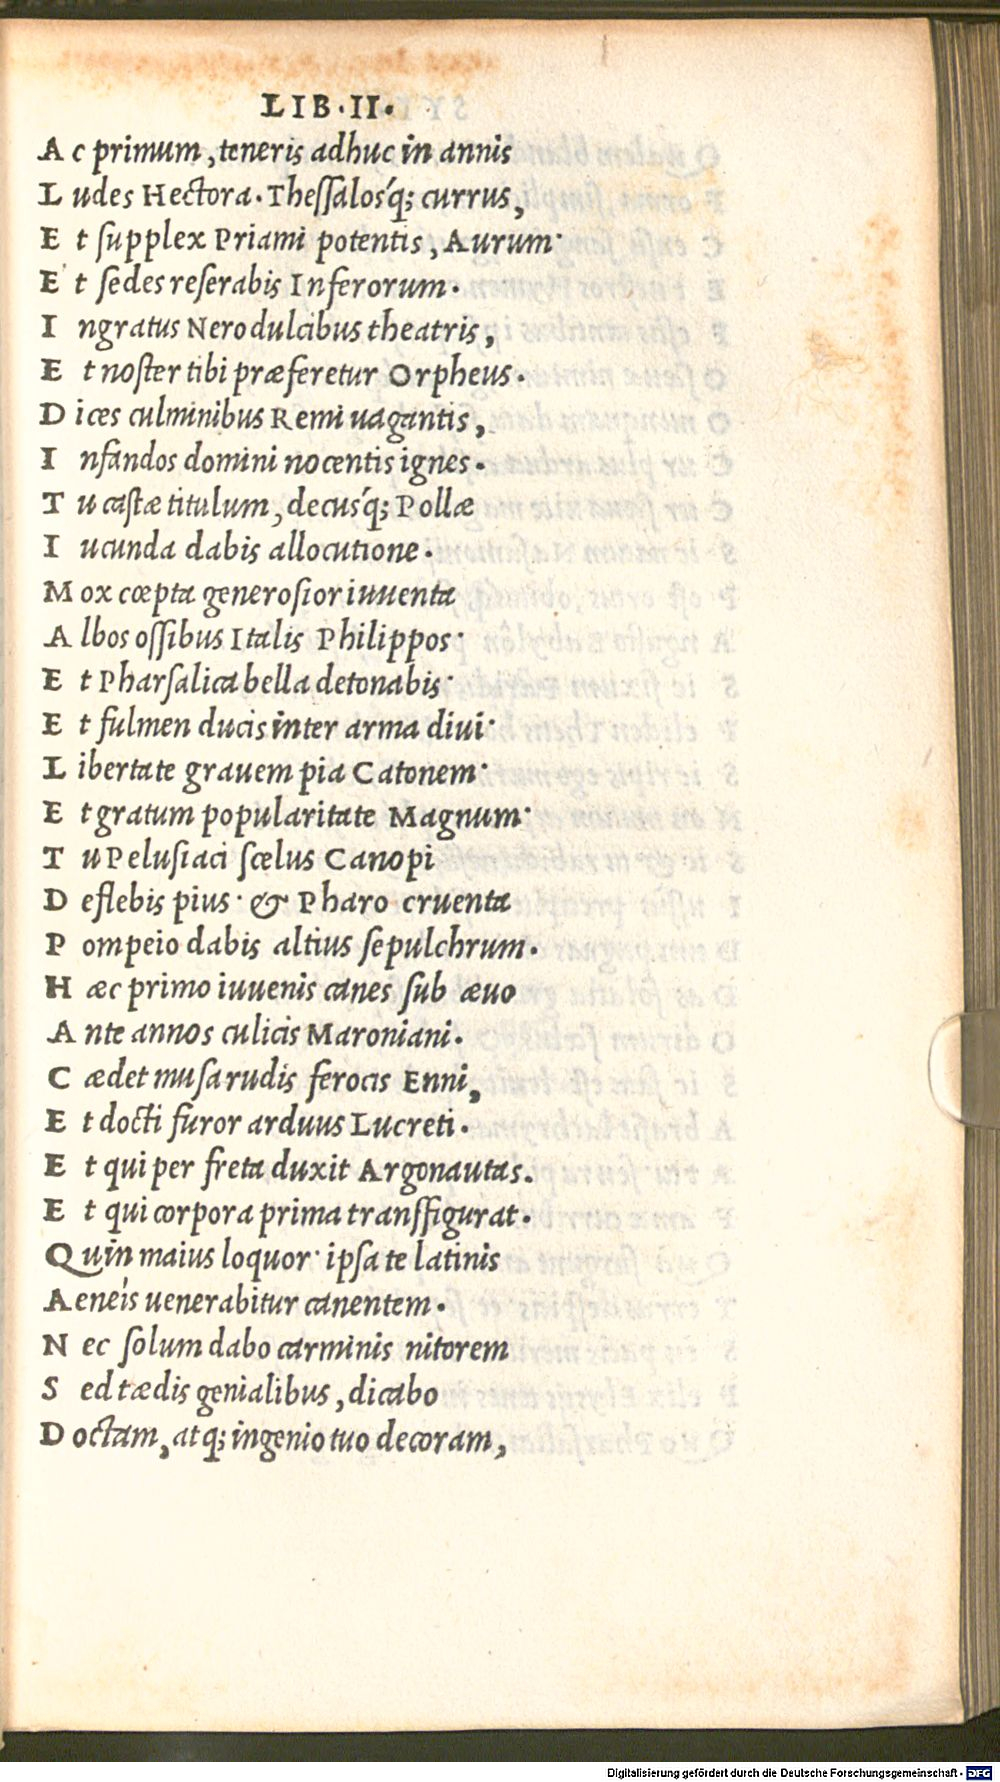 LIB·II·
Ac primum, teneris adhuc in annis
Ludes Hectora· Thessalosq́; currus,
Et supplex Priami potentis, Aurum·
Et sedes reserabis Inferorum·
Ingratus Nero dulcibus theatris,
Et noster tibi præferetur Orpheus·
Dices culminibus Remi uagantis,
Infandos domini nocentis ignes·
Tu castæ titulum, decusq́; Pollæ
Iucunda dabis allocutione·
Mox cœpta generosior iuuenta
Albos ossibus Italis Philippos·
Et Pharsalica bella detonabis·
Et fulmen ducis inter arma diui·
Libertate grauem pia Catonem·
Et gratum popularitate Magnum·
Tu Pelusiaci scelus Canopi
Deflebis pius· & Pharo cruenta
Pompeio dabis altius sepulchrum·
Hæc primo iuuenis canes sub æuo
Ante annos culicis Maroniani·
Cædet musa rudis ferocis Enni,
Et docti furor arduus Lucreti·
Et qui per freta duxit Argonautas.
Et qui corpora prima transfigurat·
Quin maius loquor· ipsa te latinis
Aeneis uenerabitur canentem·
Nec solum dabo carminis nitorem
Sed tædis genialibus, dicabo
Doctam, atq; ingenio tuo decoram,
Digitalisierung gefördert durch die Deutsche Forschungsgemeinschaft - DFG